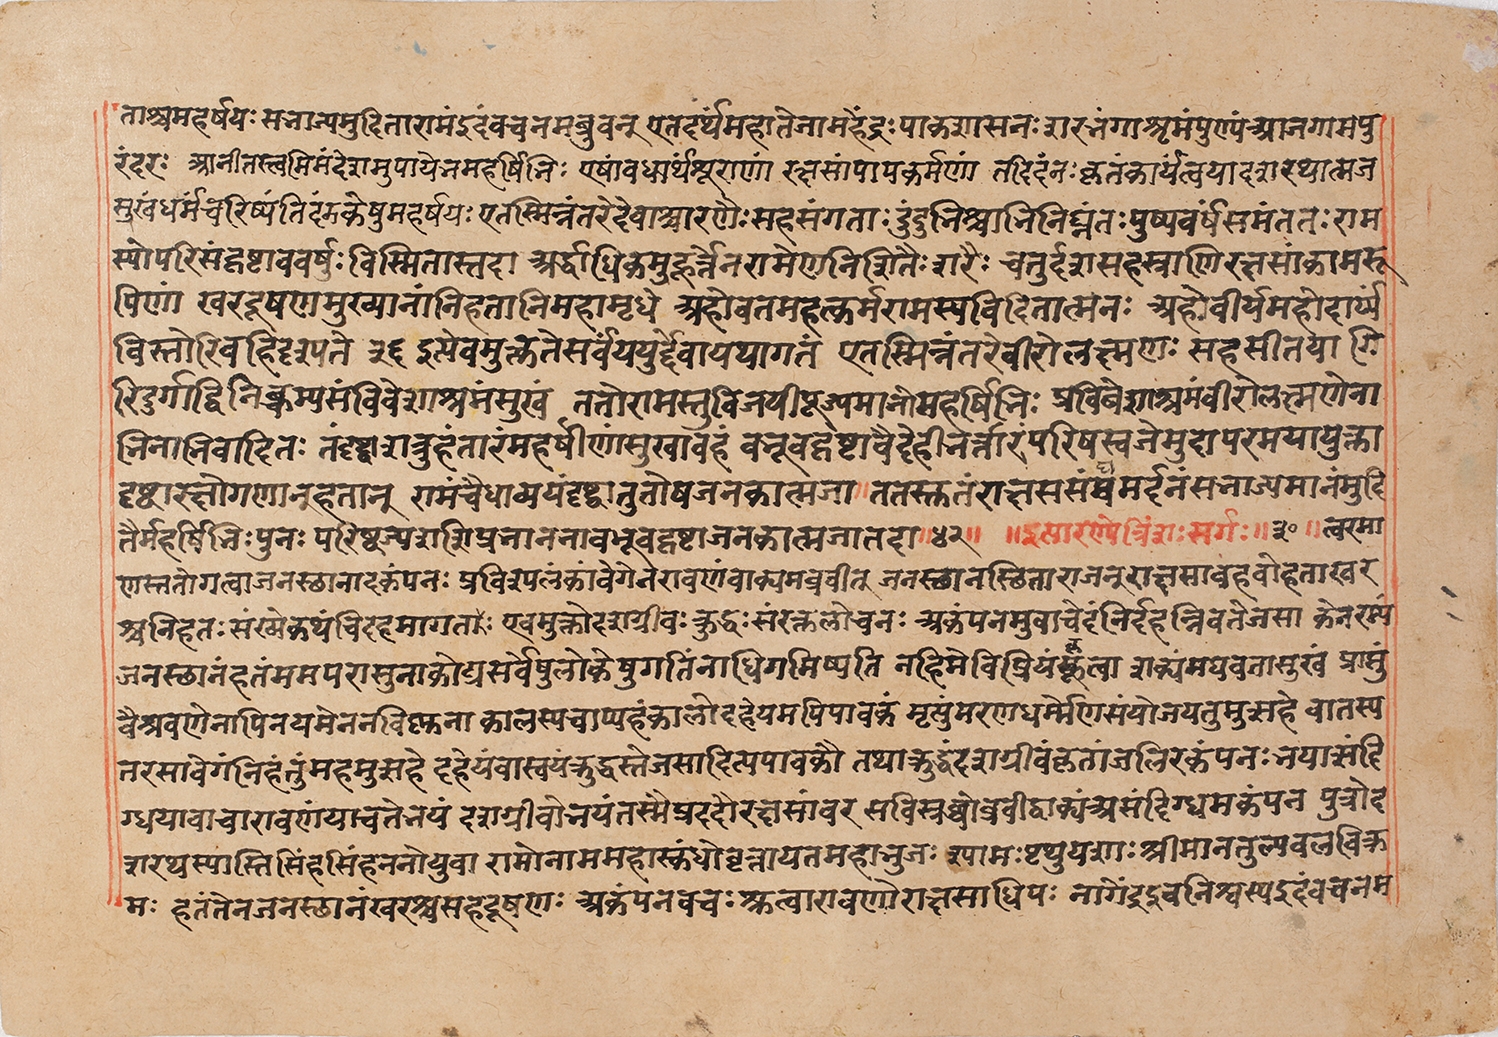 ताश्चमहर्षयः सभाज्यमुदितारामंइदंवचनमब्रुवन् एतदर्थंमहातेजामहेंद्रः पाकशासनः शरभंगाश्रमंपुण्यंआजगामपु
रंदरः आनीतस्त्वमिमंदेशमुपायेनमहर्षिभिः एषांवधार्थंशूराणां रक्षसांपापकर्मणां तदिदंनः कृतंकार्यंत्वयादशरथात्मज
सुखंधर्मंचरिष्यंतिदंडकेषुमहर्षयः एतस्मिन्नंतरेदेवाश्चारणैः सहसंगताः दुंदुभिश्चाभिनिघ्नंतः पुष्पवर्षंसमंततः राम
स्योपरिसंहृष्टाववर्षुः विस्मितास्तदा अर्द्धाधिकमुहूर्त्तेनरामेणनिशितैः शरैः चतुर्दशसहस्राणिरक्षसांकामरू
पिणां खरदूषणमुख्यानांनिहतानिमहामृधे अहोबतमहत्कर्मरामस्यविदितात्मनः अहोवीर्यमहोदार्ढ्यं
विस्मोरिवहिदृश्यते ३६ इत्येवमुक्त्वातेसर्वेययुर्द्देवायथागतं एतस्मिन्नंतरेवीरोलक्ष्मणः सहसीतया गि
रिदुर्गाद्विनिष्क्रम्यसंविवेशाश्रमंसुखं ततोरामस्तुविजयीपूज्यमानोमहर्षिभिः प्रविवेशाश्रमंवीरोलक्ष्मणेना
भिनाभिवादितः तंदृष्ट्वाशत्रुहंतारंमहर्षीणांसुखावहं बभूवहृष्टावैदेहीभर्त्तारंपरिषस्वजेमुदापरमयायुक्ता
दृष्ट्वारक्षोगणान्हतान् रामंचैवाव्ययंदृष्ट्वातुतोषजनकात्मजा ततस्तुतंराक्षससंघमर्द्दनंसभाज्यमानंमुदि
तैर्महर्षिभिः पुनः परिष्वज्यशशिप्रभाननाबभूवहृष्टाजनकात्मजातदा ॥४२॥ ॥इत्यारण्येत्रिंशः सर्गः॥ ३० ॥ त्वरमा
णस्ततोगत्वाजनस्थानादकंपनः प्रविश्यलंकांवेगेनरावणंवाक्यमब्रवीत् जनस्थानस्थिताराजन्राक्षसाबहवोहताः खर
श्चनिहतः संख्येकथंचिदहमागतः एवमुक्तोदशग्रीवः क्रुद्धः संरक्तलोचनः अकंपनमुवाचेदंनिर्दहन्निवतेजसा केनरम्यं
जनस्थानंहतंममपरासुनाकोद्यसर्वेषुलोकेषुगतिंनाधिगमिष्यति नहिमेविप्रियंकृत्वा शक्यंमघवतासुखं प्राप्तुं
वैश्रवणेनापिनयमेननविष्णुना कालस्यचाप्यहंकालोदहेयमपिपावकं मृत्युंमरणधर्मेणसंयोजयतुमुत्सहे वातस्य
तरसावेगंनिहंतुंमहमुत्सहे दहेयंवास्वयंक्रुद्धस्तेजसादित्यपावकौ तथाक्रुद्धंदशग्रीवंकृतांजलिरकंपनः भयात्संदि
ग्धयावाचारावणंयाचतेभयं दशग्रीवोभयंतस्मैप्रददौरक्षसांवर सविस्रब्धोब्रवीद्वाक्यंअसंदिग्धमकंपन पुत्रोद
शरथस्यास्तिसिंहसिंहननोयुवा रामोनाममहास्कंधोवृत्तायतमहाभुजः श्यामः पृथुयशाः श्रीमानतुल्यबलविक्र
मः हतंतेनजनस्थानंखरश्चसहदूषणः अकंपनवचः श्रुत्वारावणोराक्षसाधिपः नागेंद्रइवनिश्वस्यइदंवचनम